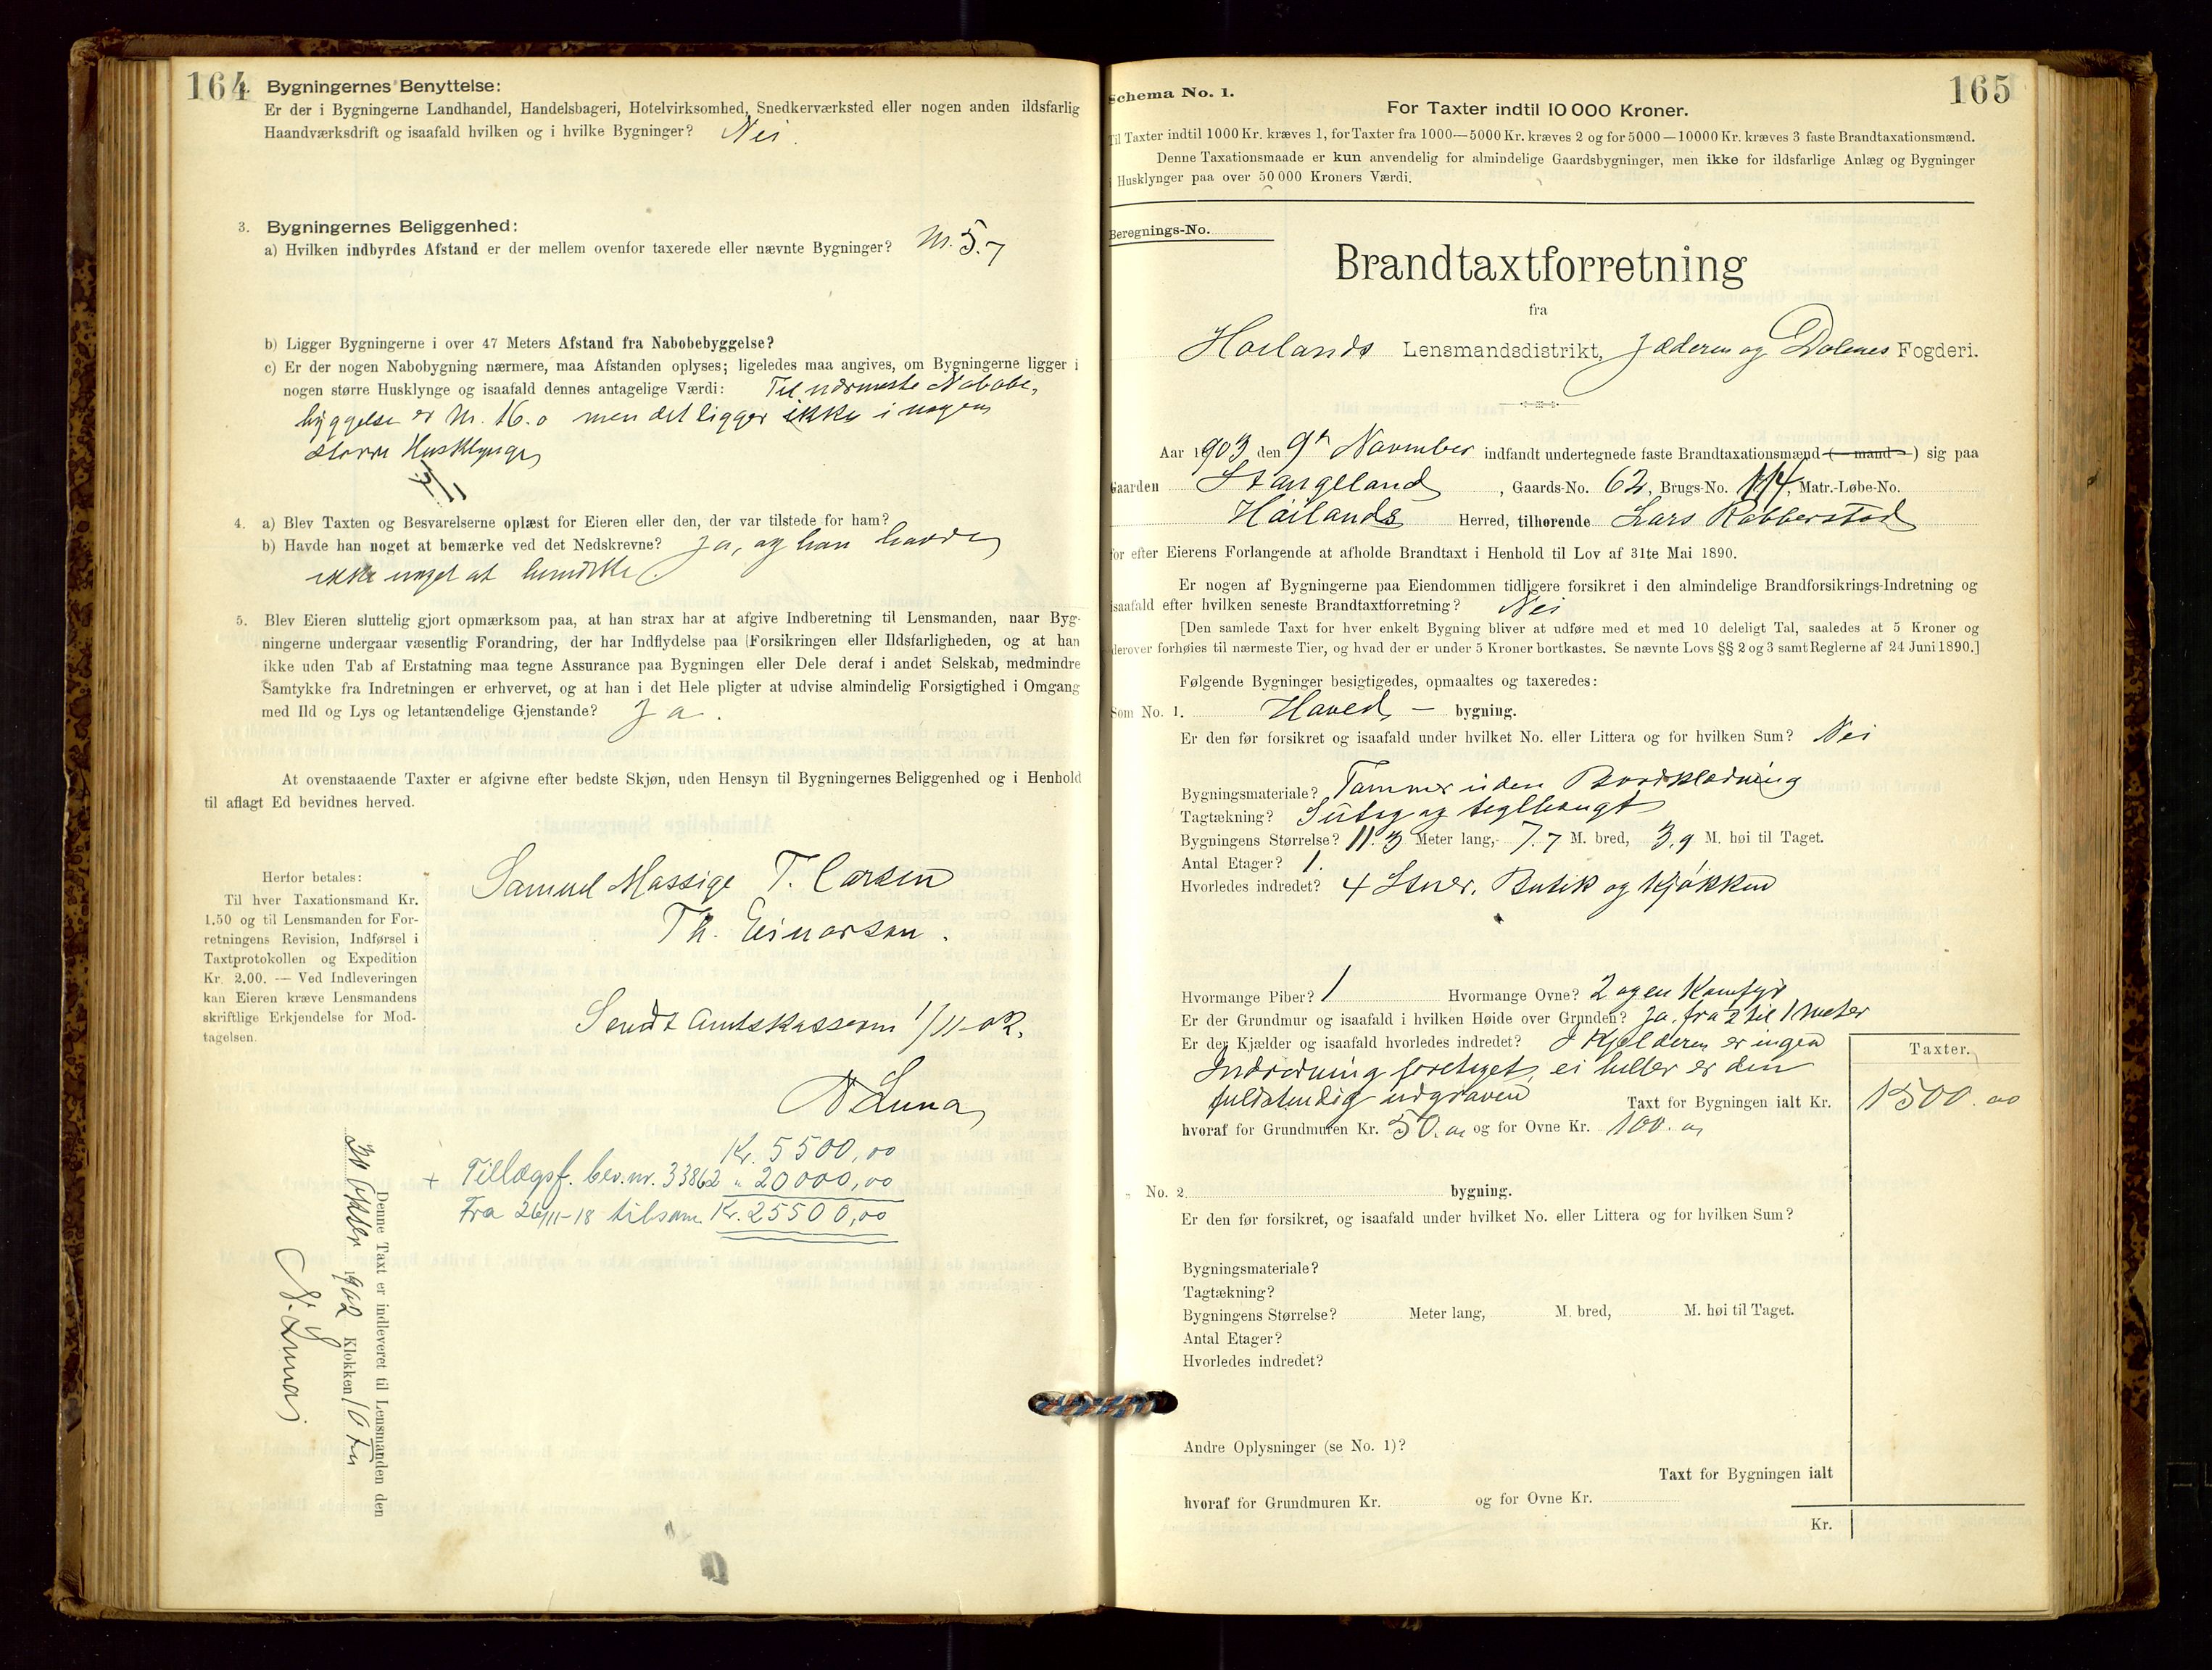 164
Bygningernes Benyttelse:
Er der i Bygningerne Landhandel, Handelsbageri, Hotelvirksomhed, Snedkerværksted eller nogen anden ildsfarlig
Haandværksdrift og isaafald hvilken og i hvilke Bygninger? Nei.
3. Bygningernes Beliggenhed:
a) Hvilken indbyrdes Afstand er der mellem ovenfor taxerede eller nævnte Bygninger? M. 5.7
b) Ligger Bygningerne i over 47 Meters Afstand fra Nabobebyggelse?
c) Er der nogen Nabobygning nærmere, maa Afstanden oplyses; ligeledes maa angives, om Bygningerne ligger i
nogen større Husklynge og isaafald dennes antagelige Værdi: Til nærmeste Nabobe,
byggelse er M. 16.0 men det ligger ikke i nogen
større Husklynge
4. a) Blev Taxten og Besvarelserne oplæst for Eieren eller den, der var tilstede for ham?
b) Havde han noget at bemærke ved det Nedskrevne? Ja, og han havde
ikke noget at bemærke.
5. Blev Eieren sluttelig gjort opmærksom paa, at han strax har at afgive Indberetning til Lensmanden, naar Byg-
ningerne undergaar væsentlig Forandring, der har Indflydelse paa Forsikringen eller Ildsfarligheden, og at han
ikke uden Tab af Erstatning maa tegne Assurance paa Bygningen eller Dele deraf i andet Selskab, medmindre
Samtykke fra Indretningen er erhvervet, og at han i det Hele pligter at udvise almindelig Forsigtighed i Omgang
med Ild og Lys og letantændelige Gjenstande? Ja.
At ovenstaaende Taxter er afgivne efter bedste Skjøn, uden Hensyn til Bygningernes Beliggenhed og i Henhold
til aflagt Ed bevidnes herved.
Samuel Massige T. Carsen
Th. Einarsen.
Herfor betales:
Til hver Taxationsmand Kr.
1.50 og til Lensmanden for For-
retningens Revision, Indførsel i
Taxtprotokollen og Expedition
Kr. 2.00. — Ved Indleveringen
kan Eieren kræve Lensmandens
skriftlige Erkjendelse for Mod-
tagelsen.
Sendt Amtskasseren 1/11-02.
N Luna
Kr. 5500,00
+ Tillægsf. bev. nr. 33862 " 20000,00
Fra 26/11-18 tilsam. Kr. 25500,00
Denne Taxt er indleveret til Lensmanden den
30 Oktbr 1902 Klokken 10 Fm
N. Luna
165
Schema No. 1.
For Taxter indtil 10 000 Kroner.
Til Taxter indtil 1000 Kr. kræves 1, for Taxter fra 1000—5000 Kr. kræves 2 og for 5000—10000 Kr. kræves 3 faste Brandtaxationsmænd.
Denne Taxationsmaade er kun anvendelig for almindelige Gaardsbygninger, men ikke for ildsfarlige Anlæg og Bygninger
i Husklynger paa over 50 000 Kroners Værdi.
Beregnings-No.
Brandtaxtforretning
fra
Hoilands Lensmandsdistrikt, Jæderen og Dalenes Fogderi.
Aar 1903 den 9de November indfandt undertegnede faste Brandtaxationsmænd (—mand—) sig paa
Gaarden Stangeland, Gaards-No. 62, Brugs-No. 114, Matr.-Løbe-No.
Høilands Herred, tilhørende Lars Rabberstad
for efter Eierens Forlangende at afholde Brandtaxt i Henhold til Lov af 31te Mai 1890.
Er nogen af Bygningerne paa Eiendommen tidligere forsikret i den almindelige Brandforsikrings-Indretning og
isaafald efter hvilken seneste Brandtaxtforretning? Nei
[Den samlede Taxt for hver enkelt Bygning bliver at udføre med et med 10 deleligt Tal, saaledes at 5 Kroner og
derover forhøies til nærmeste Tier, og hvad der er under 5 Kroner bortkastes. Se nævnte Lovs §§ 2 og 3 samt Reglerne af 24 Juni 1890.]
Følgende Bygninger besigtigedes, opmaaltes og taxeredes:
Som No. 1. Hoved — bygning.
Er den før forsikret og isaafald under hvilket No. eller Littera og for hvilken Sum? Nei
Bygningsmateriale? Tømmer uden Bordklædning
Tagtækning? Sutag og teglhængt
Bygningens Størrelse? 11.3 Meter lang, 7.7 M. bred, 3,9 M. høi til Taget.
Antal Etager? 1.
Hvorledes indredet? 4 Stuer, Butik og kjøkken
Hvormange Piber? 1 Hvormange Ovne? 2 og en Komfyr
Er der Grundmur og isaafald i hvilken Høide over Grunden? Ja, fra 2 til 1 meter
Er der Kjælder og isaafald hvorledes indredet? I Kjelderen er ingen
Indredning foretaget, ei heller er den
fuldstendig udgraven
Taxter.
Taxt for Bygningen ialt Kr. 1500.00
hvoraf for Grundmuren Kr. 50.00 og for Ovne Kr. 100.00
No. 2 bygning.
Er den før forsikret, og isaafald under hvilket No. eller Littera og for hvilken Sum?
Bygningsmateriale?
Tagtækning?
Bygningens Størrelse? Meter lang, M. bred, M. høi til Taget.
Antal Etager?
Hvorledes indredet?
Andre Oplysninger (se No. 1)?
Taxt for Bygningen ialt
hvoraf for Grundmuren Kr. og for Ovne Kr.
Kr.